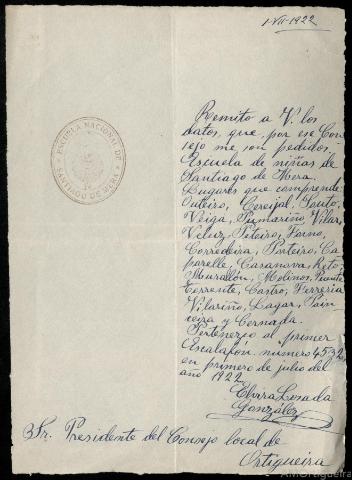 1-VII-1922
ESCUELA NACIONAL DE
SANTIAGO DE MERA
Remito a V. los
datos, que, por ese Con
sejo me son pedidos.
Escuela de niñas de
Santiago de Mera.
Lugares que comprende
Outeiro, Cereijal, Souto,
Veiga, Pumariño, Vilar,
Veluz, Piteiro, Forno,
Corredeira, Porteiro, Ca
parelle, Casanova, Reto,
Murallón, Molinos, Puente
Torrente, Castro, Ferrería
Vilariño, Lagar,
y Cernada.
Pertenezco al primer
Escalafón, numero 4532
en primero de julio del
año 1922
Elvira Losada
González
Sr. Presidente del Consejo local de
Ortigueira
AMOrtigueira